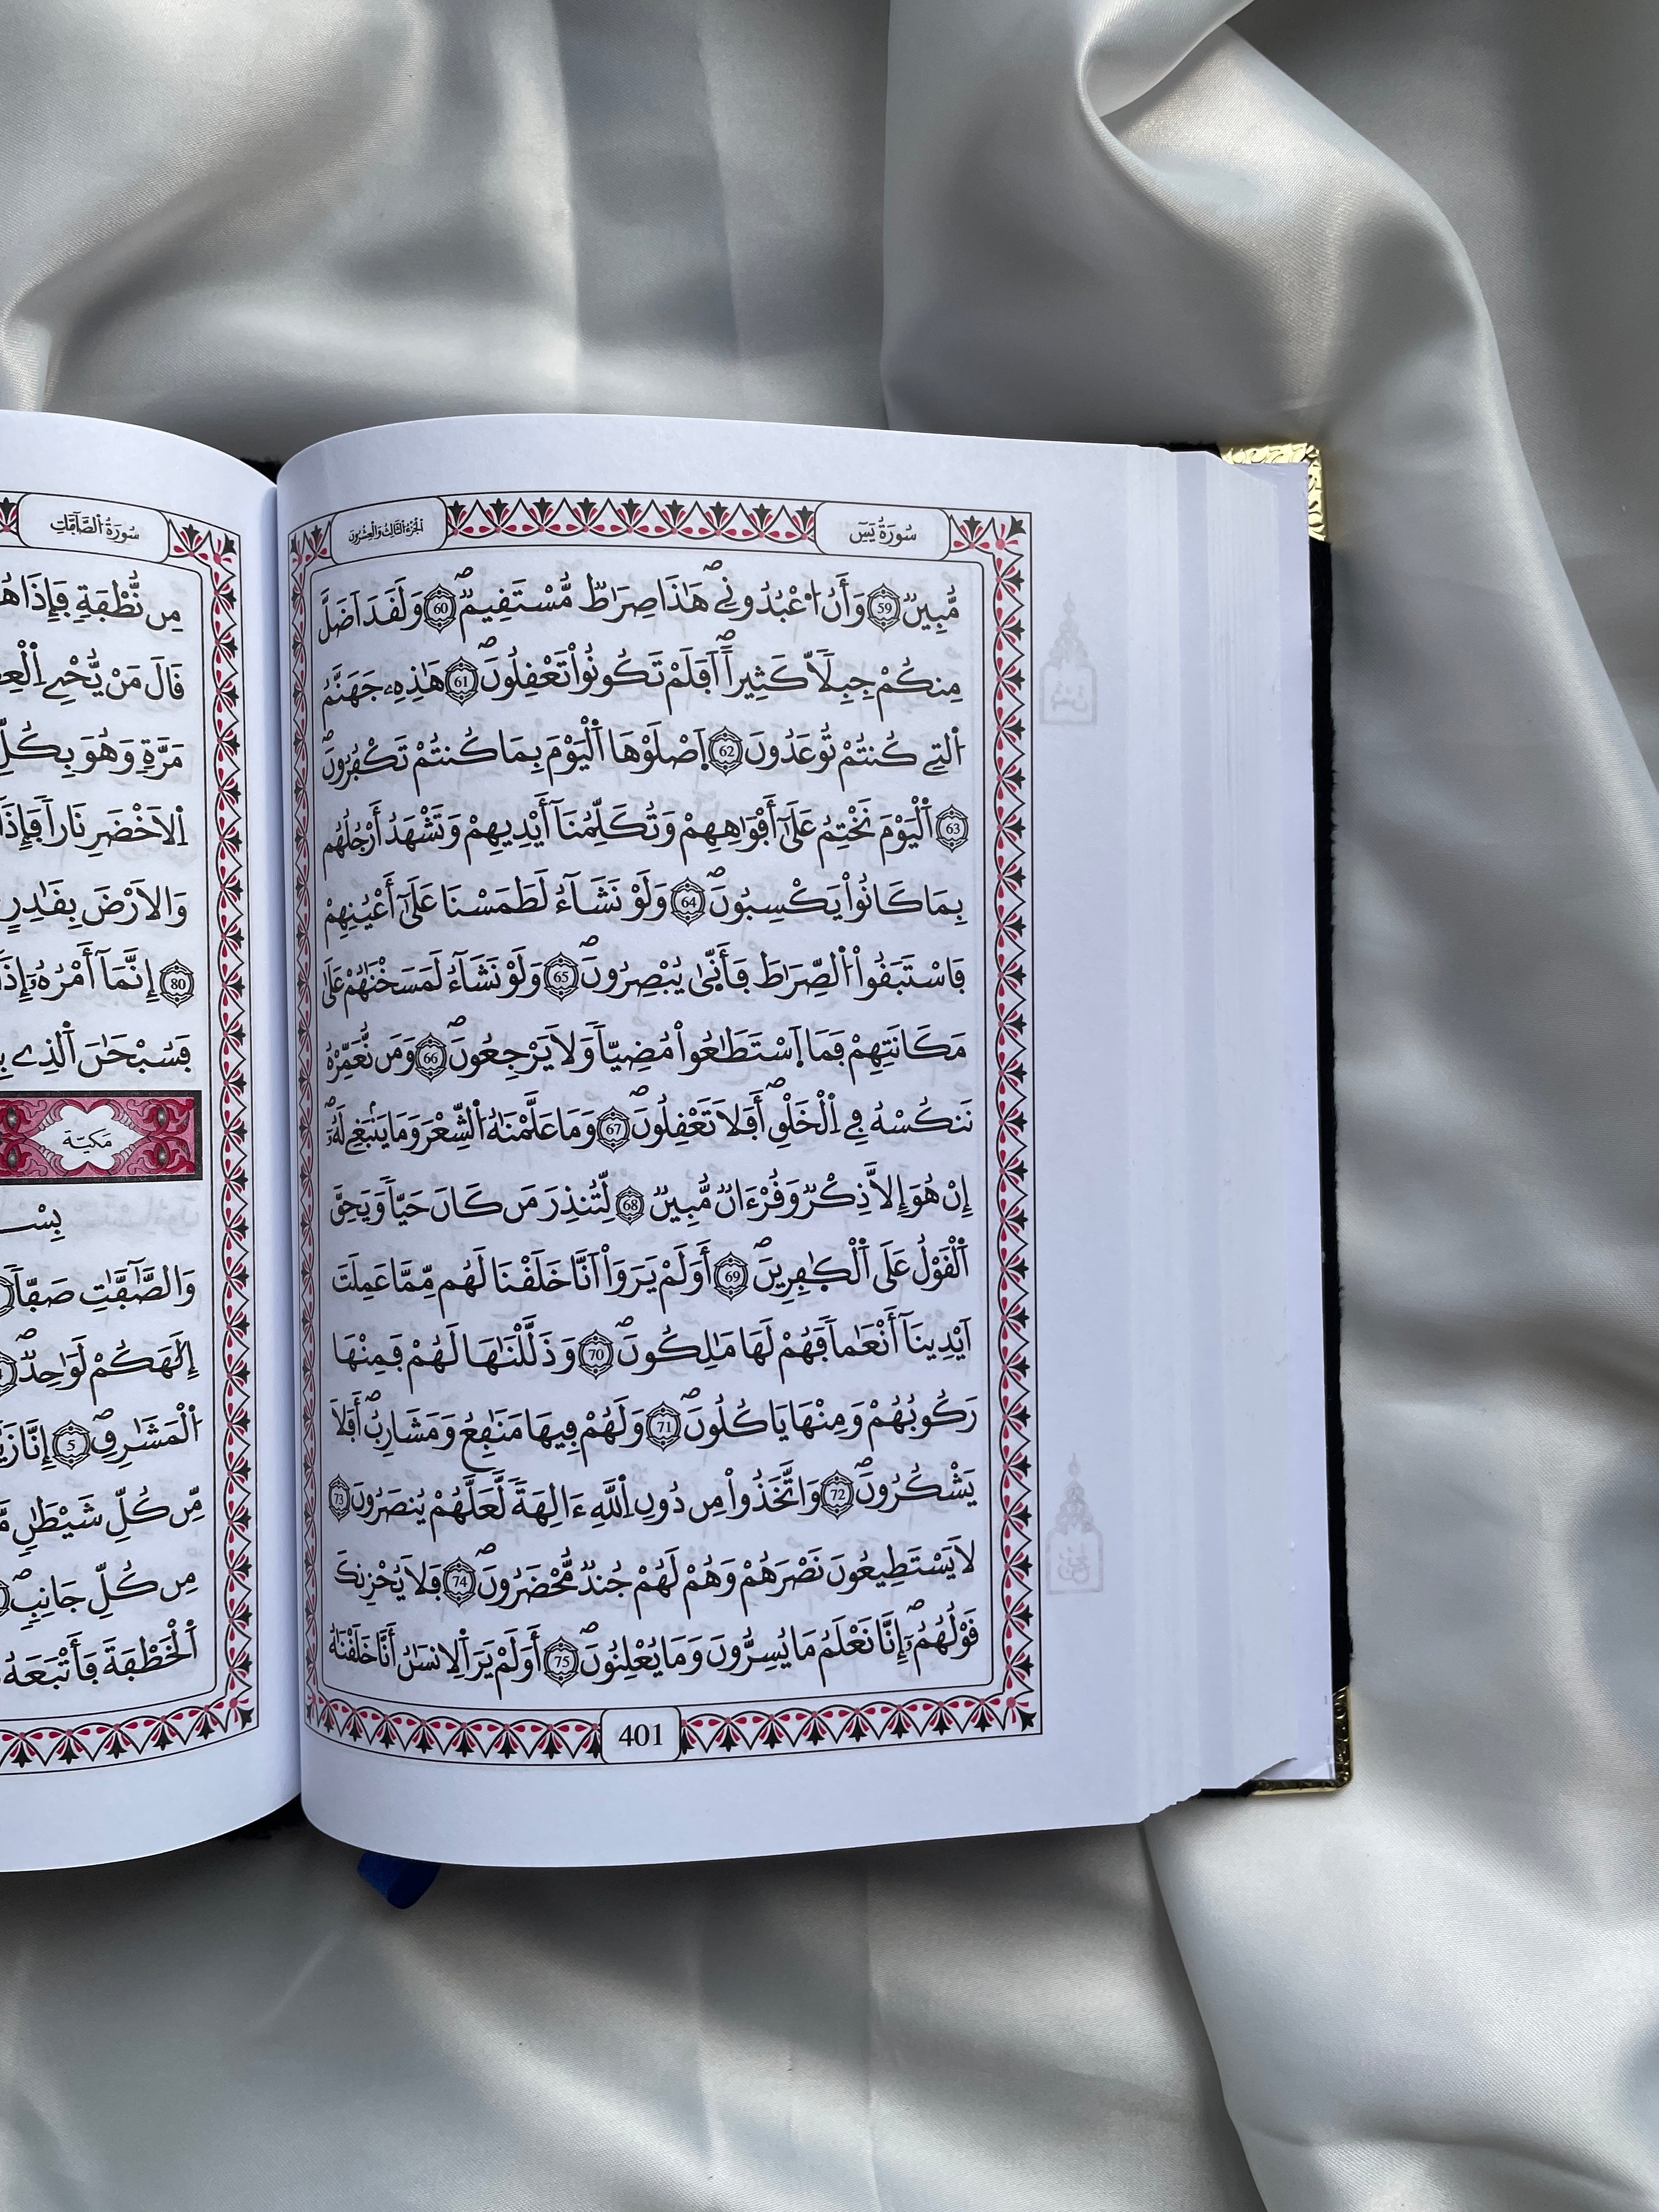 سُورَةُ يَسٓ
الجُزْءُ الثَّالِثُ وَالْعِشْرُونَ
مُّبِينٌ 59 وَأَنُ اُعْبُدُونِے هَٰذَا صِرَٰطٌ مُّسْتَقِيمٌ 60 وَلَقَدَ اَضَلَّ
مِنكُمْ جِبِلّاٗ كَثِيراً اَفَلَمْ تَكُونُواْ تَعْقِلُونَ 61 هَٰذِهِۦ جَهَنَّمُ
اُ۬لتِے كُنتُمْ تُوعَدُونَ 62 اَ۪صْلَوْهَا اَ۬لْيَوْمَ بِمَا كُنتُمْ تَكْفُرُونَ
63 اَ۬لْيَوْمَ نَخْتِمُ عَلَىٰٓ أَفْوَٰهِهِمْ وَتُكَلِّمُنَآ أَيْدِيهِمْ وَتَشْهَدُ أَرْجُلُهُم
بِمَا كَانُواْ يَكْسِبُونَ 64 وَلَوْ نَشَآءُ لَطَمَسْنَا عَلَىٰٓ أَعْيُنِهِمْ
فَاسْتَبَقُواْ اُ۬لصِّرَٰطَ فَأَنّ۪ىٰ يُبْصِرُونَ 65 وَلَوْ نَشَآءُ لَمَسَخْنَٰهُمْ عَلَىٰ
مَكَانَتِهِمْ فَمَا اَ۪سْتَطَٰعُواْ مُضِيّاٗ وَلَا يَرْجِعُونَ 66 وَمَن نُّعَمِّرْهُ
نَنكُسْهُ فِے اِ۬لْخَلْقِ أَفَلَا تَعْقِلُونَ 67 وَمَا عَلَّمْنَٰهُ اُ۬لشِّعْرَ وَمَا يَنۢبَغِے لَهُۥٓ
إِنْ هُوَ إِلَّا ذِكْرٌ وَقُرْءَانٌ مُّبِينٌ 68 لِّتُنذِرَ مَن كَانَ حَيّاٗ وَيَحِقَّ
اَ۬لْقَوْلُ عَلَى اَ۬لْكٰ۪فِرِينَ 69 أَوَلَمْ يَرَوَاْ اَنَّا خَلَقْنَا لَهُم مِّمَّا عَمِلَتَ
اَيْدِينَآ أَنْعَٰماٗ فَهُمْ لَهَا مَٰلِكُونَ 70 وَذَلَّلْنَٰهَا لَهُمْ فَمِنْهَا
رَكُوبُهُمْ وَمِنْهَا يَاكُلُونَ 71 وَلَهُمْ فِيهَا مَنَٰفِعُ وَمَشَارِبُ أَفَلَا
يَشْكُرُونَ 72 وَاتَّخَذُواْ مِن دُونِ اِ۬للَّهِ ءَالِهَةٗ لَّعَلَّهُمْ يُنصَرُونَ 73
لَا يَسْتَطِيعُونَ نَصْرَهُمْ وَهُمْ لَهُمْ جُندٞ مُّحْضَرُونَ 74 فَلَا يُحْزِنكَ
قَوْلُهُمُۥٓ إِنَّا نَعْلَمُ مَا يُسِرُّونَ وَمَا يُعْلِنُونَ 75 أَوَلَمْ يَرَ اَ۬لِانسَٰنُ أَنَّا خَلَقْنَٰهُ
401
سُورَةُ الصَّآفَّاتِ
مِن نُّطْفَةٖ فَإِذَا
قَالَ مَنْ يُّحْےِ اِ۬لْ
مَرَّةٖ وَهُوَ بِكُلِّ
اَ۬لَاخْضَرِ نَاراٗ فَإِذَا
وَالَارْضَ بِقَٰدِرٍ
80 إِنَّمَآ أَمْرُهُۥٓ إِذَا
فَسُبْحَٰنَ اَ۬لذِے
مَكيّة
بِسْ
وَالصَّٰٓفَّٰتِ صَفّاٗ
إِلَٰهَكُمْ لَوَٰحِدٞ
اُ۬لْمَشَٰرِقِ 5 إِنَّا
مِّن كُلِّ شَيْطَٰنٖ
مِن كُلِّ جَانِبٖ
اَ۬لْخَطْفَةَ فَأَتْبَعَهُۥ